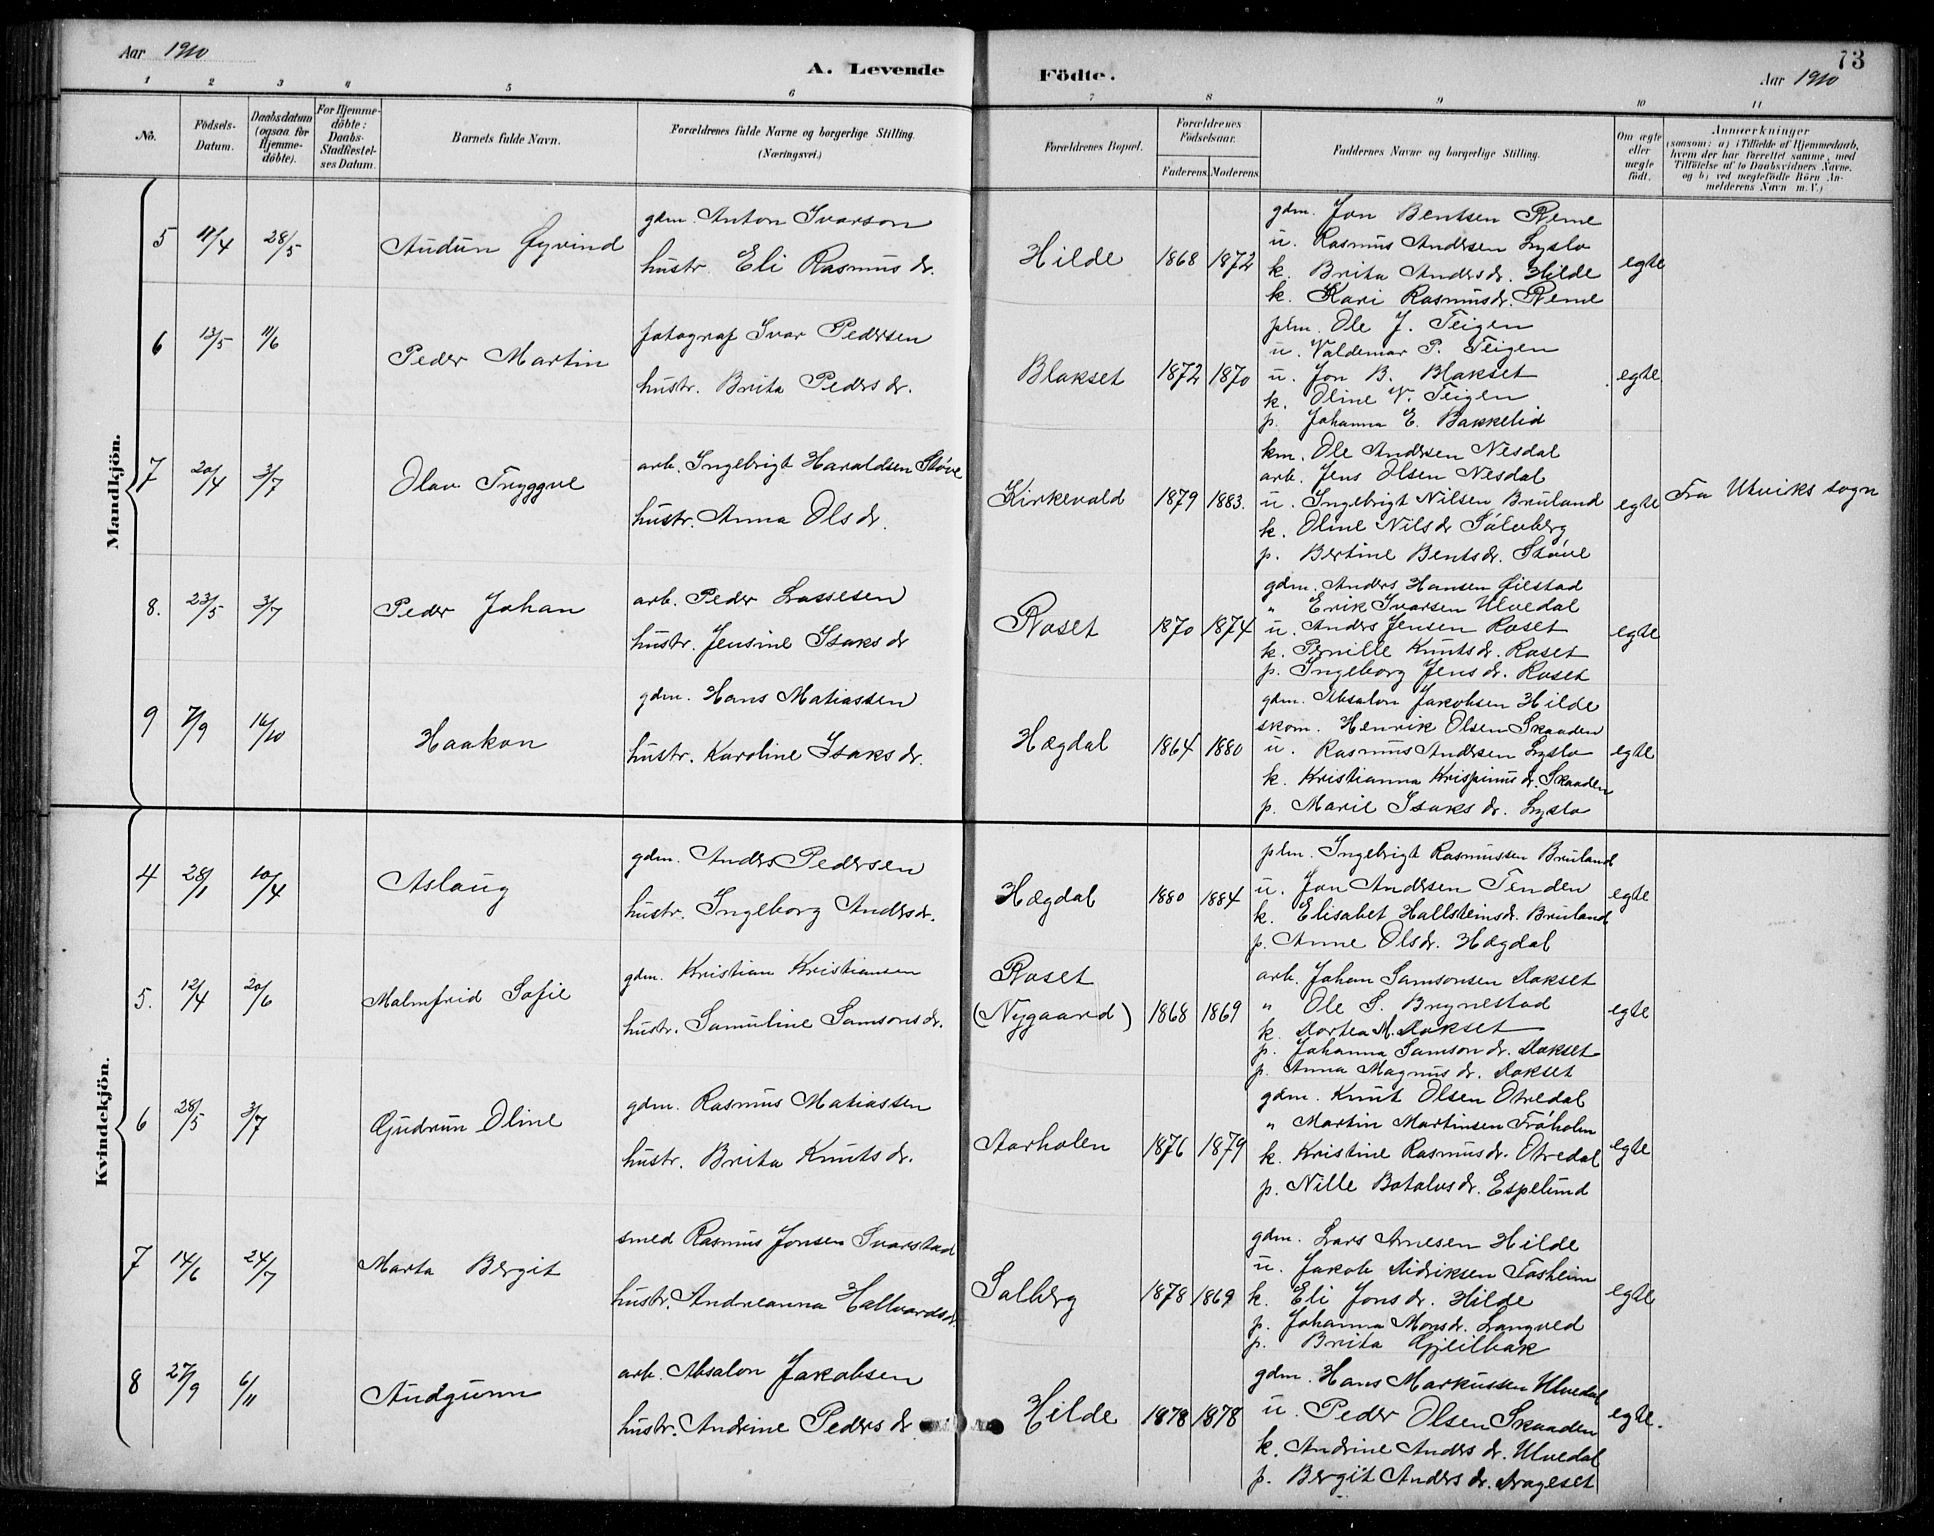 Aar 1910
A. Levende
Födte.
73
Aar 1910
1 2 3 4 5 6 7 8 9 10 11
No.
Födsels-
Datum.
Daabsdatum
(ogsaa for
Hjemme-
döbte).
For Hjemme-
döbte:
Daabs-
Stadfæstel-
ses Datum.
Barnets fulde Navn.
Forældrenes fulde Navne og borgerlige Stilling.
(Næringsvei.)
Forældrenes Bopæl.
Forældrenes
Födselsaar.
Faderens. Moderens.
Faddernes Navne og borgerlige Stilling.
Om ægte
eller
uægte
födt.
Anmærkninger
(saasom: a) i Tilfælde af Hjemmedaab,
hvem der har forrettet samme, med
Tilföielse af to Daabsvidners Navne.
og b) ved uægtefödte Börn An-
melderens Navn m. V.)
Mandkjön.
5 11/4 28/5 Audun Øyvind
gdm. Anton Ivarson
hustr. Eli Rasmusdr.
Hilde 1868 1872
gdm. Jon Bentsen Reme
u. Rasmus Andersen Lyslo
k. Brita Andersdr. Hilde
k. Kari Rasmusdr. Reme
egte
6 13/5 11/6 Peder Martin
fotograf Ivar Pedersen
hustr. Brita Pedersdr.
Blakset 1872 1870
plm. Ole J. Teigen
u. Valdemar P. Teigen
u. Jon B. Blakset
k. Oline N. Teigen
p. Johanna E. Bakkelid
egte
7 20/4 3/7 Olav Tryggve
arb. Ingebrigt Haraldsen Støve
hustr. Anna Olsdr.
Kirkevald 1879 1883.
km. Ole Andersen Nesdal
arb. Jens Olsen Nesdal
u. Ingebrigt Nilsen Bruland
k. Oline Nilsdr Sølvberg
p. Bertine Bentsdr. Støve
egte
Fra Utviks sogn
8. 23/5 3/7 Peder Johan
arb. Peder Lassesen
hustr. Jensine Isaksdr
Roset 1870 1874
gdm. Anders Hansen Øilstad
" Erik Ivarsen Ulvedal
u. Anders Jensen Roset
k. Pernille Knutsdr. Roset
p. Ingeborg Jensdr. Roset
egte
9 7/9 16/10 Haakon
gdm. Hans Matiassen
hustr. Karoline Isaksdr.
Hægdal 1864 1880
gdm. Absalon Jakobsen Hilde
skom. Henrik Olsen Skaaden
u. Rasmus Andersen Lyslo
k. Kristianna Krispinusdr. Skaaden
p. Marie Isaksdr. Lyslo
egte
Kvindekjön.
4 28/1 10/4 Aslaug
gdm. Anders Pedersen
hustr. Ingeborg Andersdr.
Hægdal 1880 1884
plm. Ingebrigt Rasmussen Bruland
u. Jon Andersen Tenden
k. Elisabet Hallsteinsdr. Bruland
p. Anne Olsdr. Hægdal
egte
5. 12/4 20/6 Malmfrid Sofie
gdm. Kristian Kristiansen
hustr. Samuline Samsonsdr.
Roset
(Nygaard) 1868 1869
arb. Johan Samsonsen Dokset
" Ole S. Brynestad
k. Dortea M. Dokset
p. Johanna Samsondr. Dokset
p. Anna Magnusdr. Dokset
egte
6 28/5 3/7 Gudrun Oline
gdm. Rasmus Matiassen
hustr. Brita Knutsdr.
Aarholen 1876 1879
gdm. Knut Olsen Otredal
" Martin Martinsen Frøholm
k. Kristine Rasmusdr. Otredal
p. Nille Botolvsdr. Espelund
egte
7 14/6 24/7 Marta Bergit
smed Rasmus Jonsen Ivarstad
hustr. Andreanna Hallvardsdr.
Solberg 1878 1869
gdm. Lars Arnesen Hilde
u. Jakob Didriksen Fosheim
k. Eli Jonsdr. Hilde
p. Johanna Monsdr. Langved
p. Brita Gjeilbak
egte
8 27/9 6/11 Audgunn
arb. Absalon Jakobsen
hustr. Andrine Pedersdr
Hilde 1878 1878
gdm. Hans Markussen Ulvedal
u. Peder Olsen Skaaden
k. Andrine Andersdr. Ulvedal
p. Bergit Andersdr. Drageset
egte.